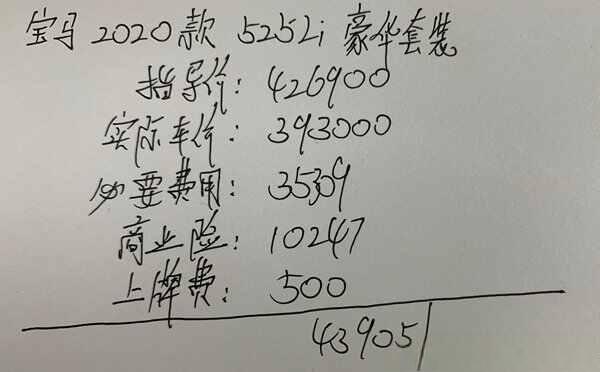 宝马 2020款 525Li 豪华套装
指导价: 426900
实际车价: 393000
必要费用: 35309
商业险: 10247
上牌费: 500
43905